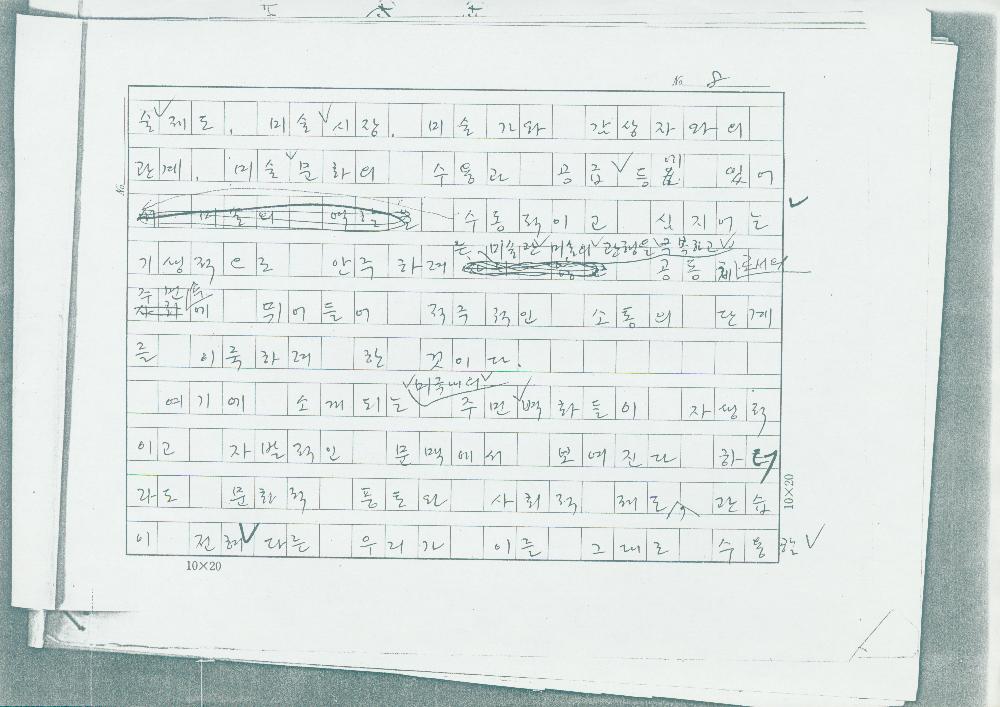 No. 8
술 제도, 미술 시장, 미술가와 감상자와의
관계, 미술 문화의 수용과 공급 등에 있어
수동적이고 심지어는
기생적으로 안주하려는 미술관 미술의 관행을 극복하고 공동체로서의
주민 속에 뛰어들어 적극적인 소통의 단계
를 이룩하려 한 것이다.
여기에 소개되는 미국내의 주민 벽화들이 자생적
이고 자발적인 문맥에서 보여진다 하더
라도 문화적 풍토와 사회적 제도, 관습
이 전혀 다른 우리가 이를 그대로 수용할
10×20
10×20
No.